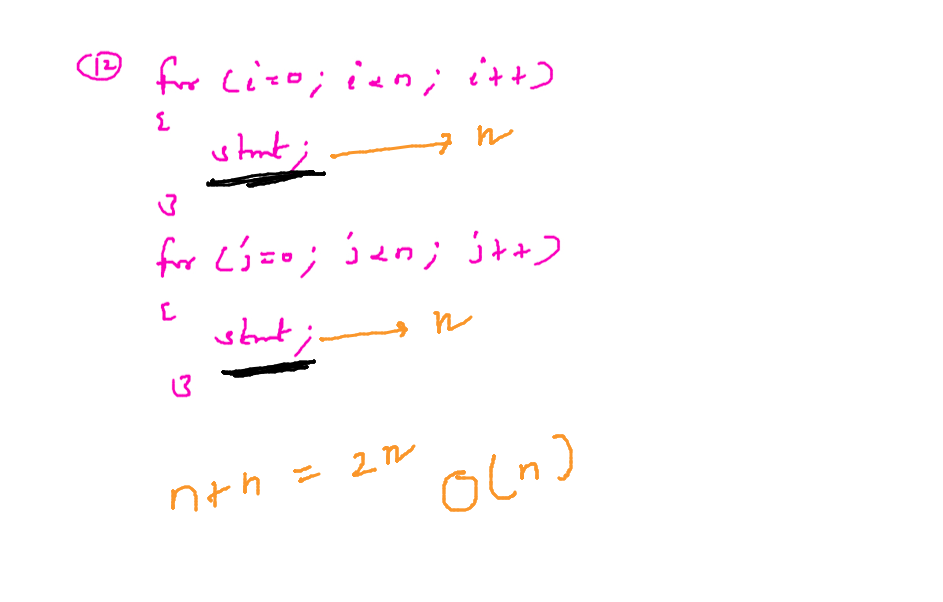 ⑫ for (i=0; i<n; i++)
{
stmt; → n
}
for (j=0; j<n; j++)
{
stmt; → n
}
n+n = 2n O(n)